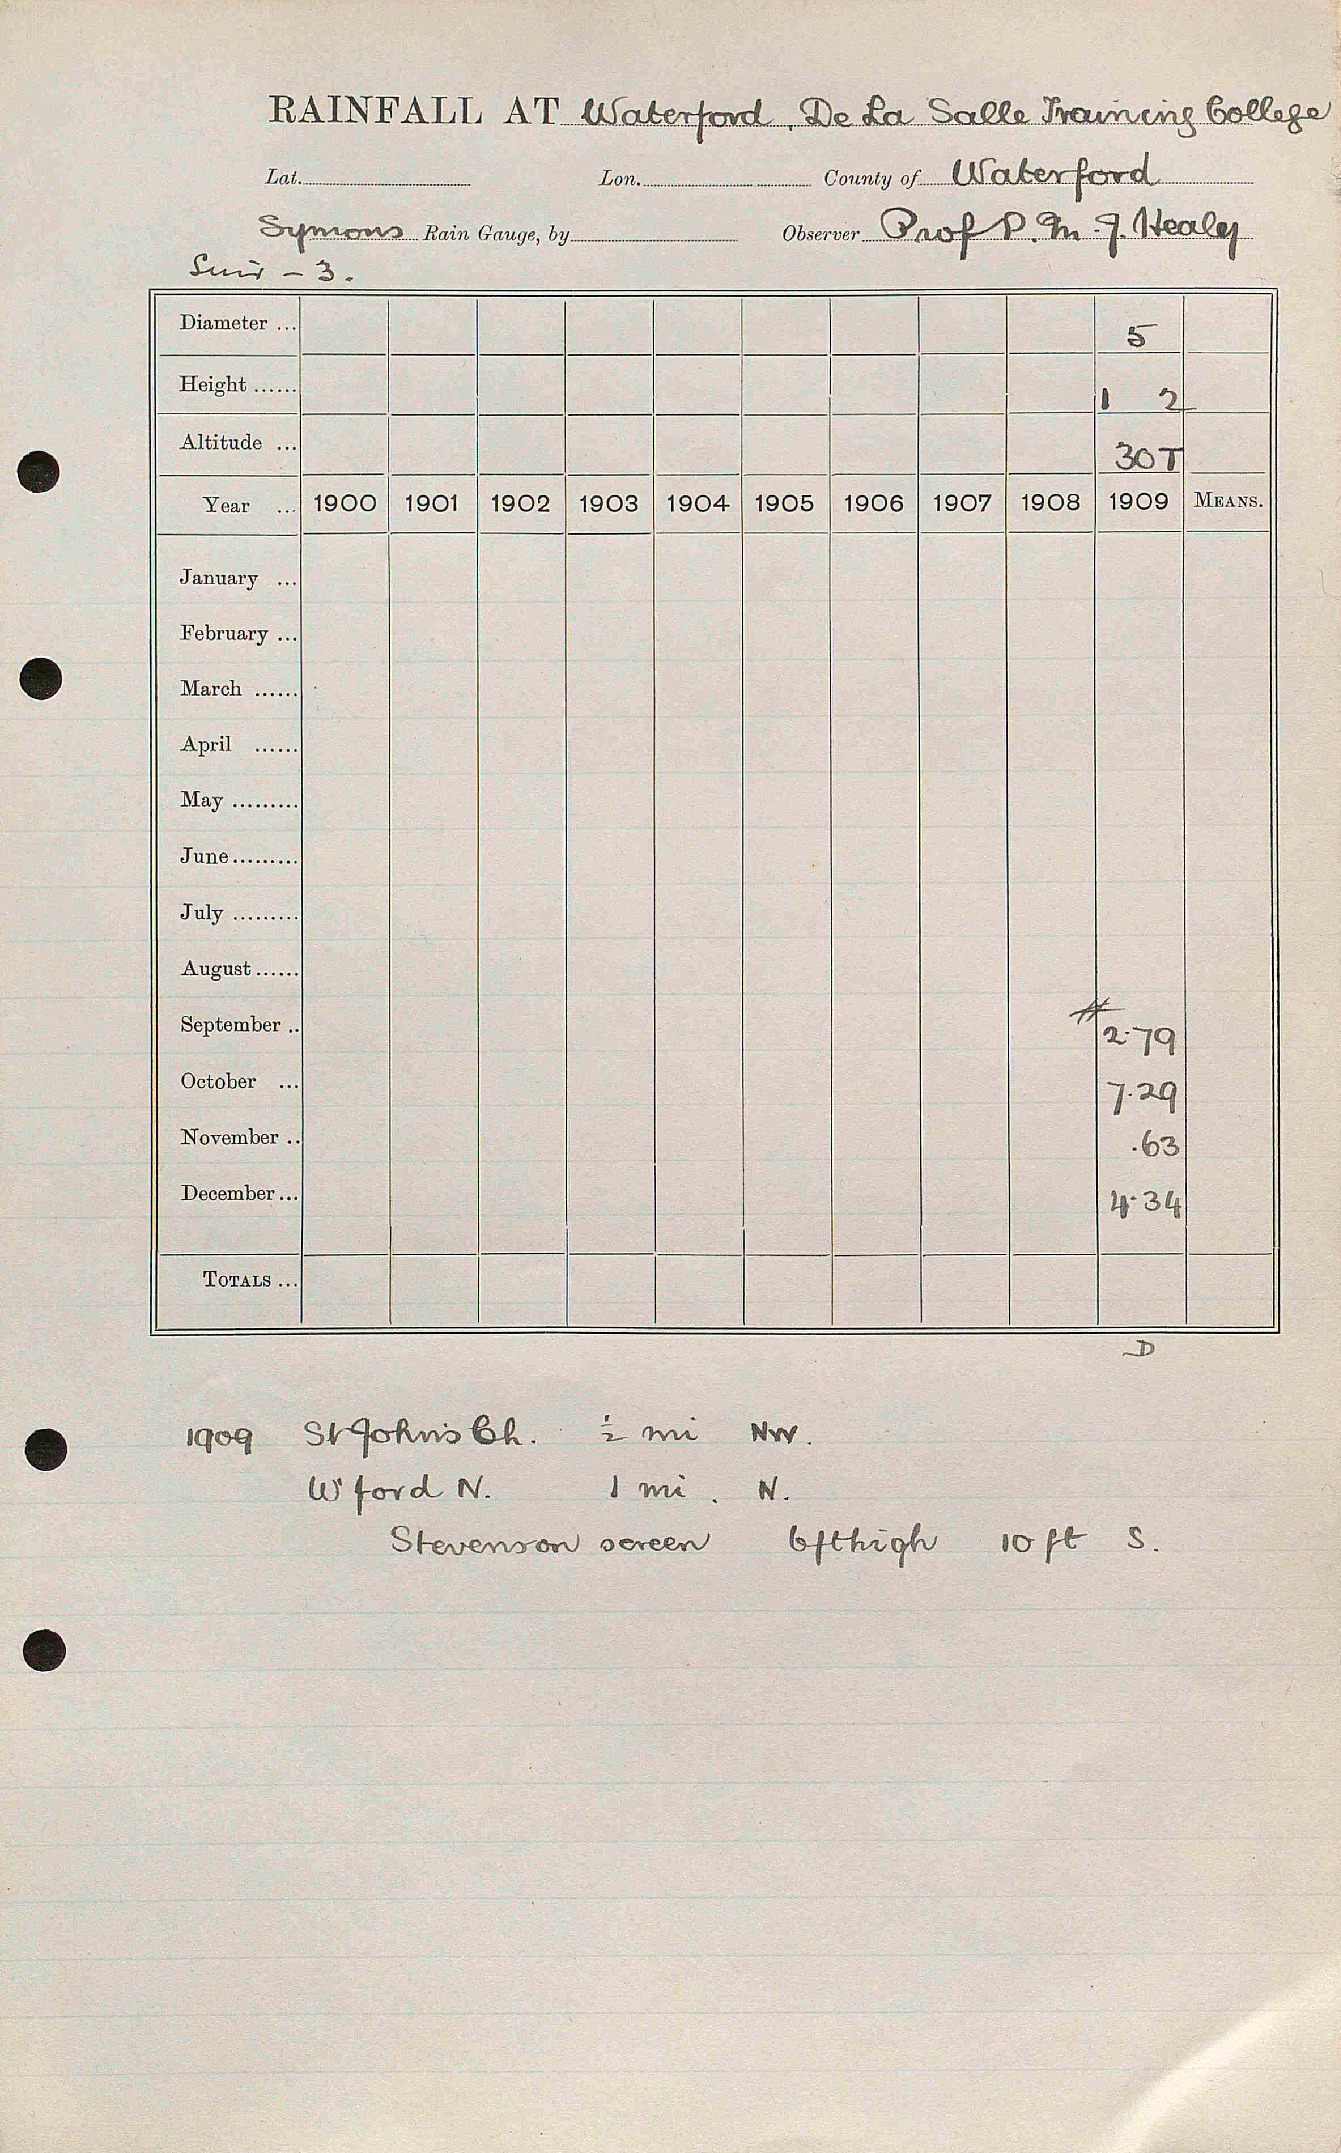 RAINFALL AT Waterford, De La Salle Training College
Lat. Lon. County of Waterford
Symons Rain Gauge, by Observer Prof P. M. J. Healy
Suir - 3.
Diameter ... 5
Height ...... 1 2
Altitude ... 30T
Year ... 1900 1901 1902 1903 1904 1905 1906 1907 1908 1909 MEANS.
January ...
February ...
March ......
April ......
May .........
June.........
July .........
August......
September .. # 2.79
October ... 7.29
November .. .63
December... 4.34
TOTALS ...
D
1909 St John's Ch. ½ mi NW.
W'ford N. 1 mi. N.
Stevenson screen 6ft high 10 ft S.